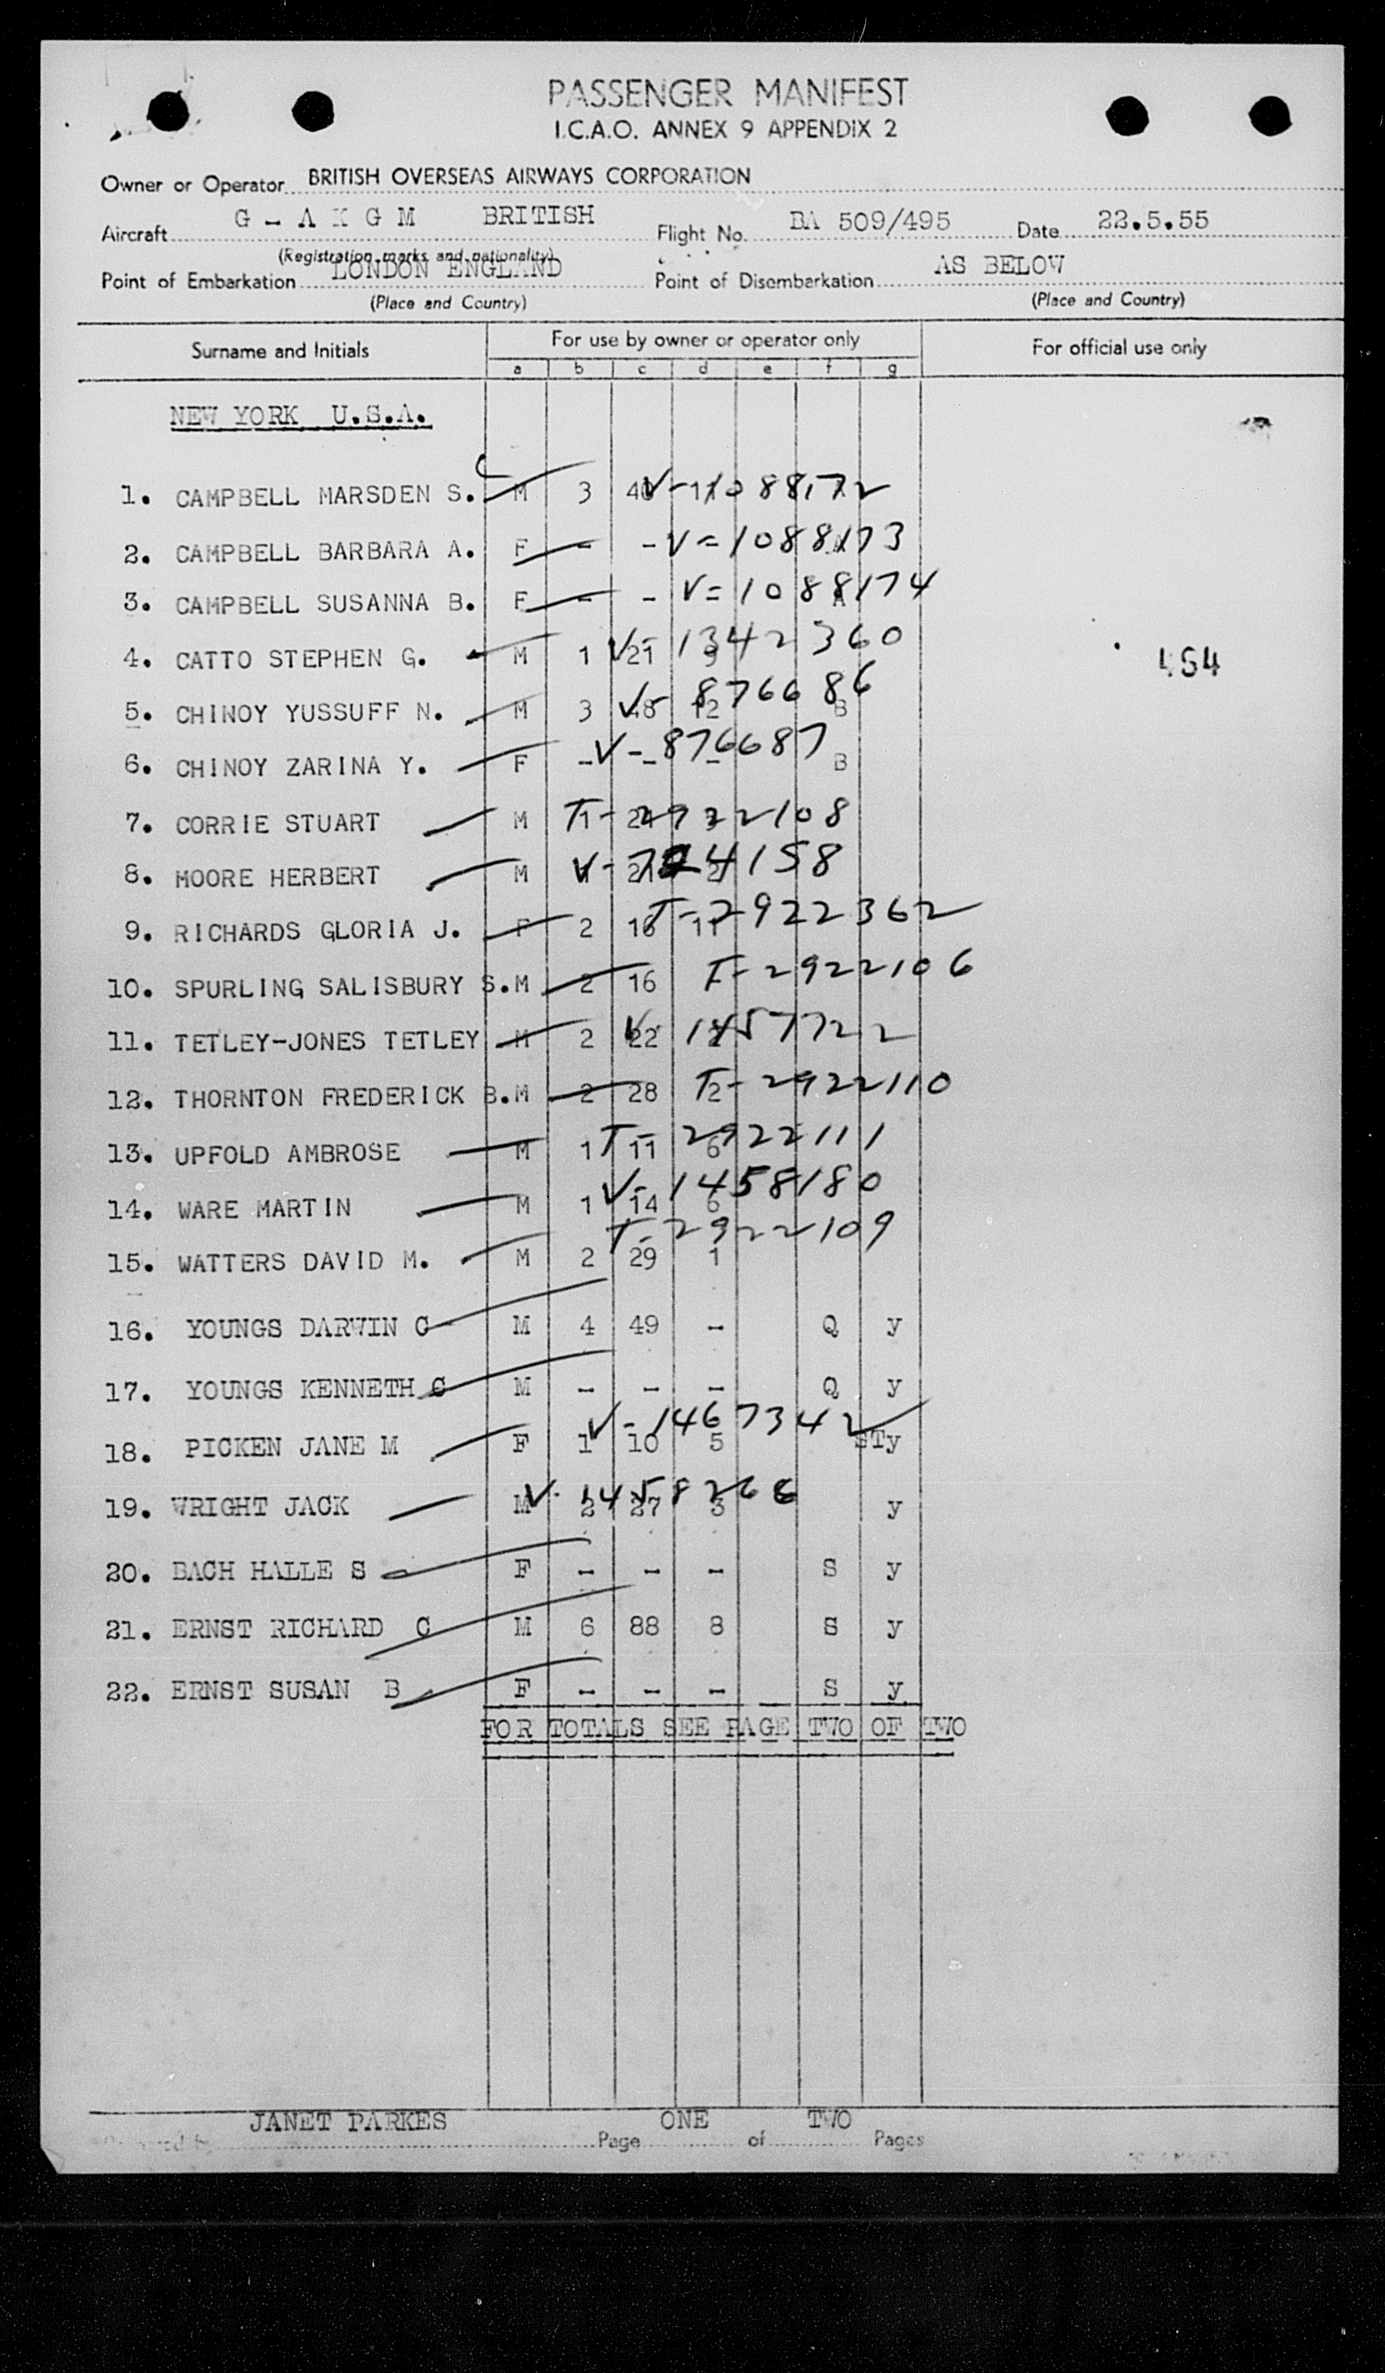 PASSENGER MANIFEST
I.C.A.O. ANNEX 9 APPENDIX 2
Owner or Operator BRITISH OVERSEAS AIRWAYS CORPORATION
Aircraft G - A K G M BRITISH Flight No. BA 509/495 Date 22.5.55
(Registration marks and nationality)
Point of Embarkation LONDON ENGLAND Point of Disembarkation AS BELOW
(Place and Country) (Place and Country)
Surname and Initials For use by owner or operator only For official use only
a b c d e f g
NEW YORK U.S.A.
1. CAMPBELL MARSDEN S. M 3 V-1088172
2. CAMPBELL BARBARA A. F - - V=1088173
3. CAMPBELL SUSANNA B. F - - V=1088174 A
4. CATTO STEPHEN G. M 1 21 9 V-1342360
454
5. CHINOY YUSSUFF N. M 3 48 12 V-876686 B
6. CHINOY ZARINA Y. F - - - V-876687 B
7. CORRIE STUART M 1 T-2922108
8. MOORE HERBERT M
9. RICHARDS GLORIA J. F 2 16 11 T-2922362
10. SPURLING SALISBURY S. M 2 16 T-2922106
11. TETLEY-JONES TETLEY M 2 22 V-1457722
12. THORNTON FREDERICK B. M 2 28 2 T-2922110
13. UPFOLD AMBROSE M 1 11 6 T-2922111
14. WARE MARTIN M 1 14 6 V-1458180
15. WATTERS DAVID M. M 2 29 1 T-2922109
16. YOUNGS DARWIN C M 4 49 - Q y
17. YOUNGS KENNETH C M - - - Q y
18. PICKEN JANE M F 1 10 5 V-1467342 STy
19. WRIGHT JACK M 2 27 3 V-1458266 y
20. BACH HALLE S F - - - S y
21. ERNST RICHARD C M 6 88 8 S y
22. ERNST SUSAN B F - - - S y
FOR TOTALS SEE PAGE TWO OF TWO
JANET PARKES Page ONE of TWO Pages